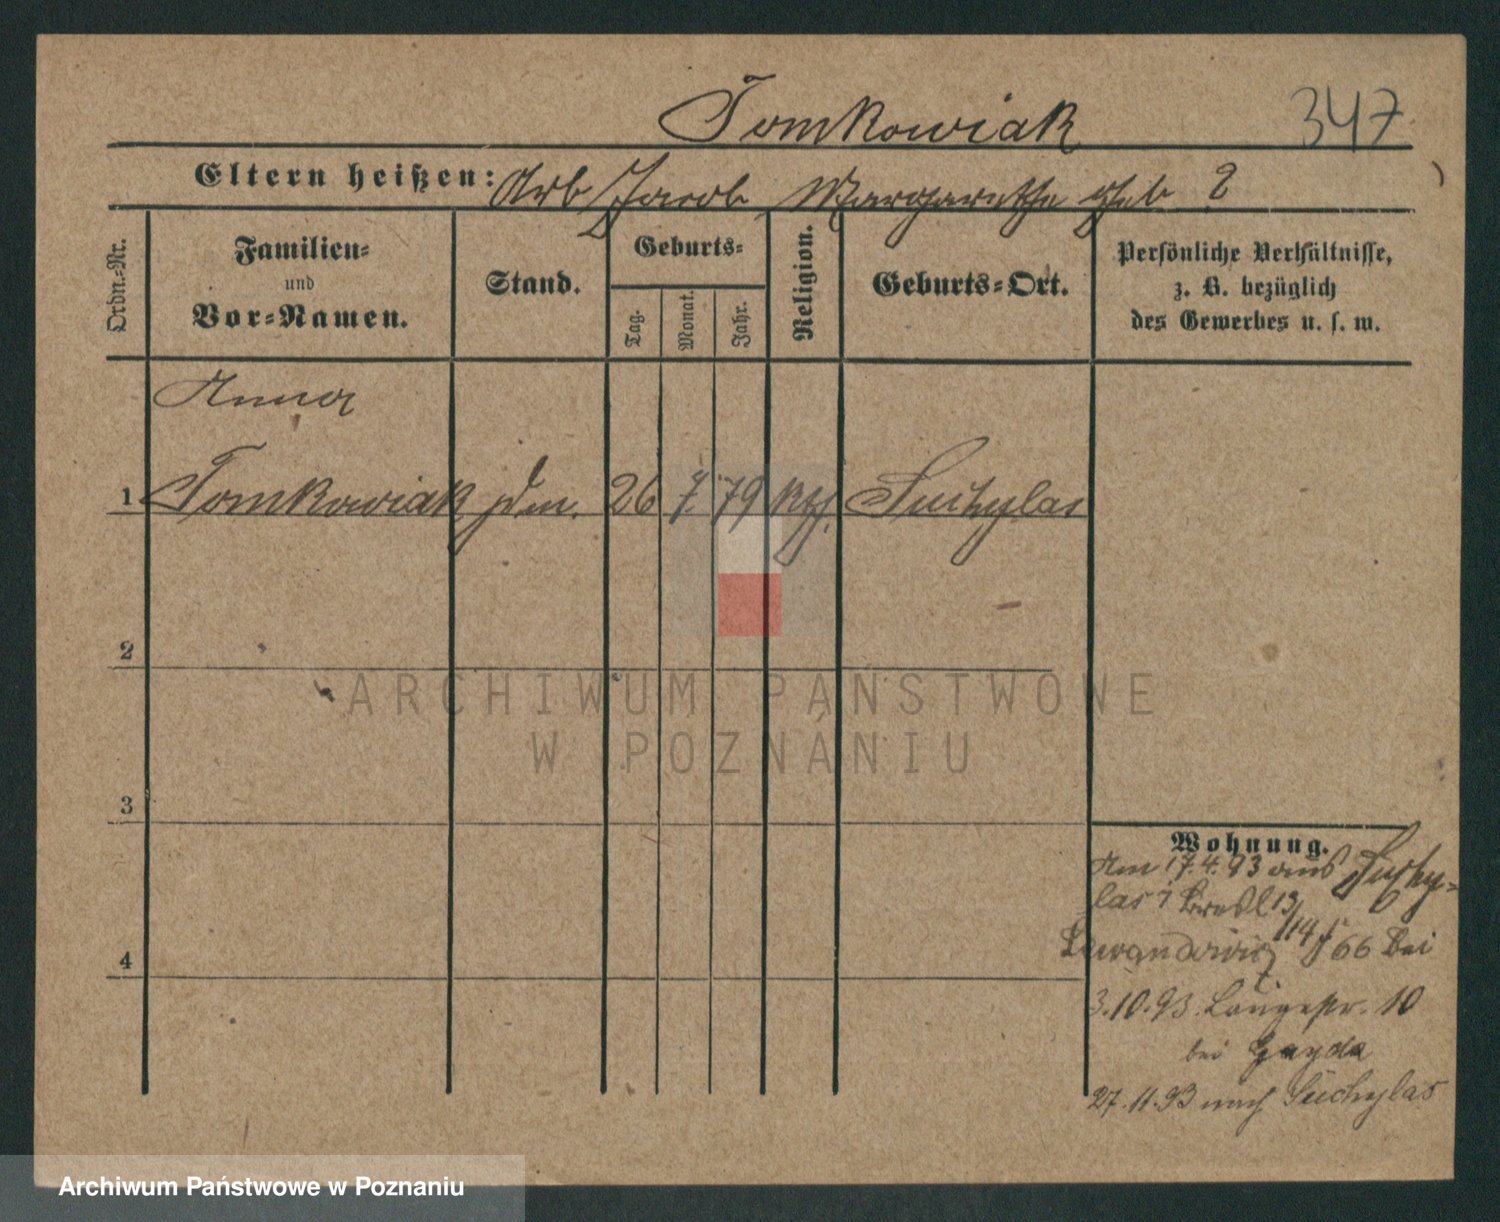 Tomkowiak 347
Eltern heißen: Arb Jacob Margarethe geb ?
Ordn.-Nr.
Familien-
und
Vor-Namen.
Stand.
Geburts-
Tag.
Monat.
Jahr.
Religion.
Geburts-Ort.
Persönliche Verhältnisse,
z. B. bezüglich
des Gewerbes u. s. w.
Anna
1 Tomkowiak 26 7. 79 kth. Suchylas
2
3
4
Wohnung.
Am 17.4.93 aus Suchy-
las 13/14
66 bei
3.10.93. Langestr. 10
bei Gayda
27.11.93 nach Suchylas
ARCHIWUM PAŃSTWOWE
W POZNANIU
Archiwum Państwowe w Poznaniu